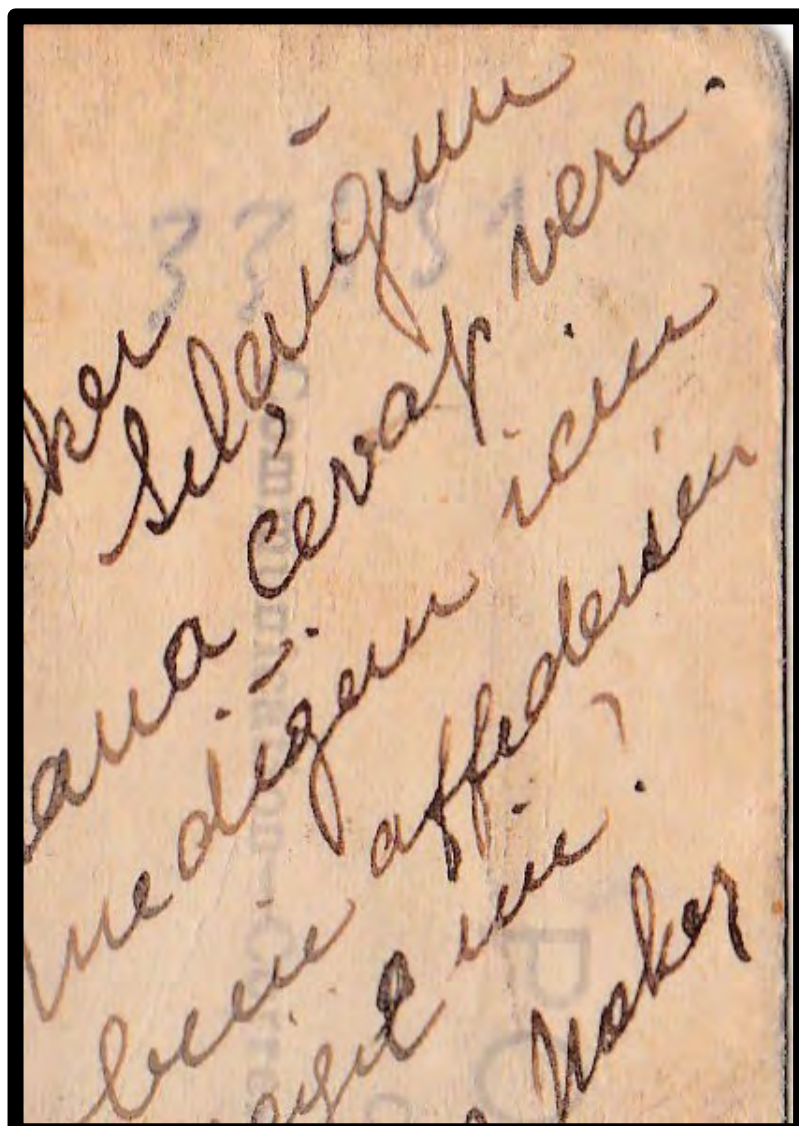 eker
Selçuğum
ana cevap vere.
mediğim için
beni affedersin
eğil mi?